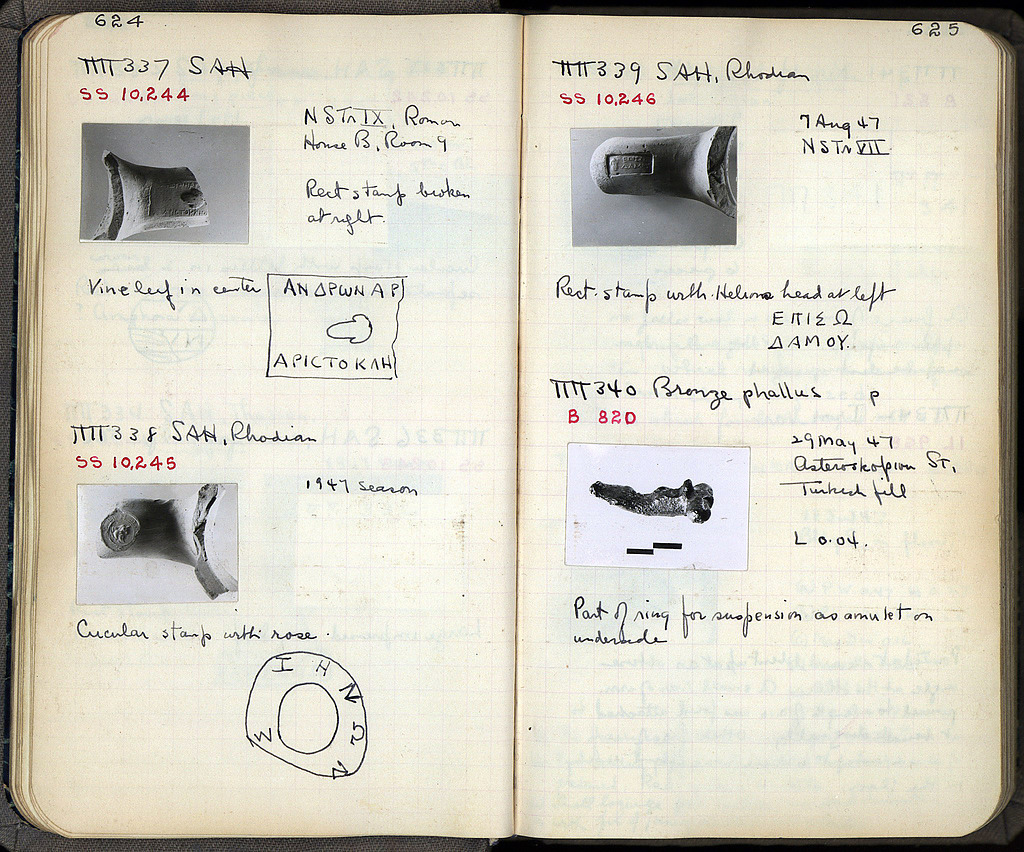 624
ΠΠ337 SAH
SS 10,244
NSTr IX, Roman
House B, Room 9
Rect stamp broken
at right.
Vine leaf in center
ΑΝΔΡωΝ ΑΡ
ΑΡΙCΤΟΚΛΗ
ΠΠ338 SAH, Rhodian
SS 10,245
1947 season
Circular stamp with rose.
Ι Η Ν
Μ
625
ΠΠ339 SAH, Rhodian
SS 10,246
7 Aug 47
NSTr VII
Rect. stamp with Helios head at left
ΕΠΙΣΩ
ΔΑΜΟΥ.
ΠΠ340 Bronze phallus P
B 820
29 May 47
Asteroskopiou St,
Turkish fill
L 0.04.
Part of ring for suspension as amulet on
underside